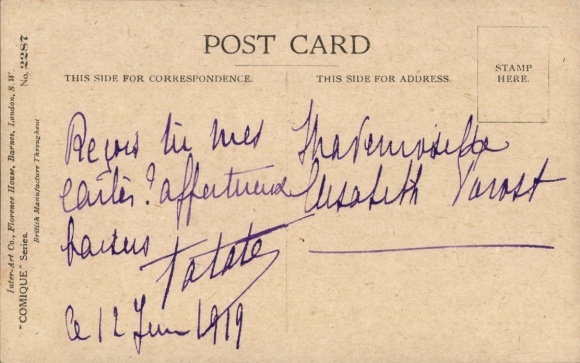 POST CARD
THIS SIDE FOR CORRESPONDENCE.
THIS SIDE FOR ADDRESS.
STAMP
HERE.
Inter-Art Co., Florence House, Barnes, London, S.W.
British Manufacture Throughout
"COMIQUE" Series.
No. 2287
Reçois tu mes
cartes? affectueux
baisers
Tatate
le 12 Juin 1919
Mademoiselle
Elisabeth